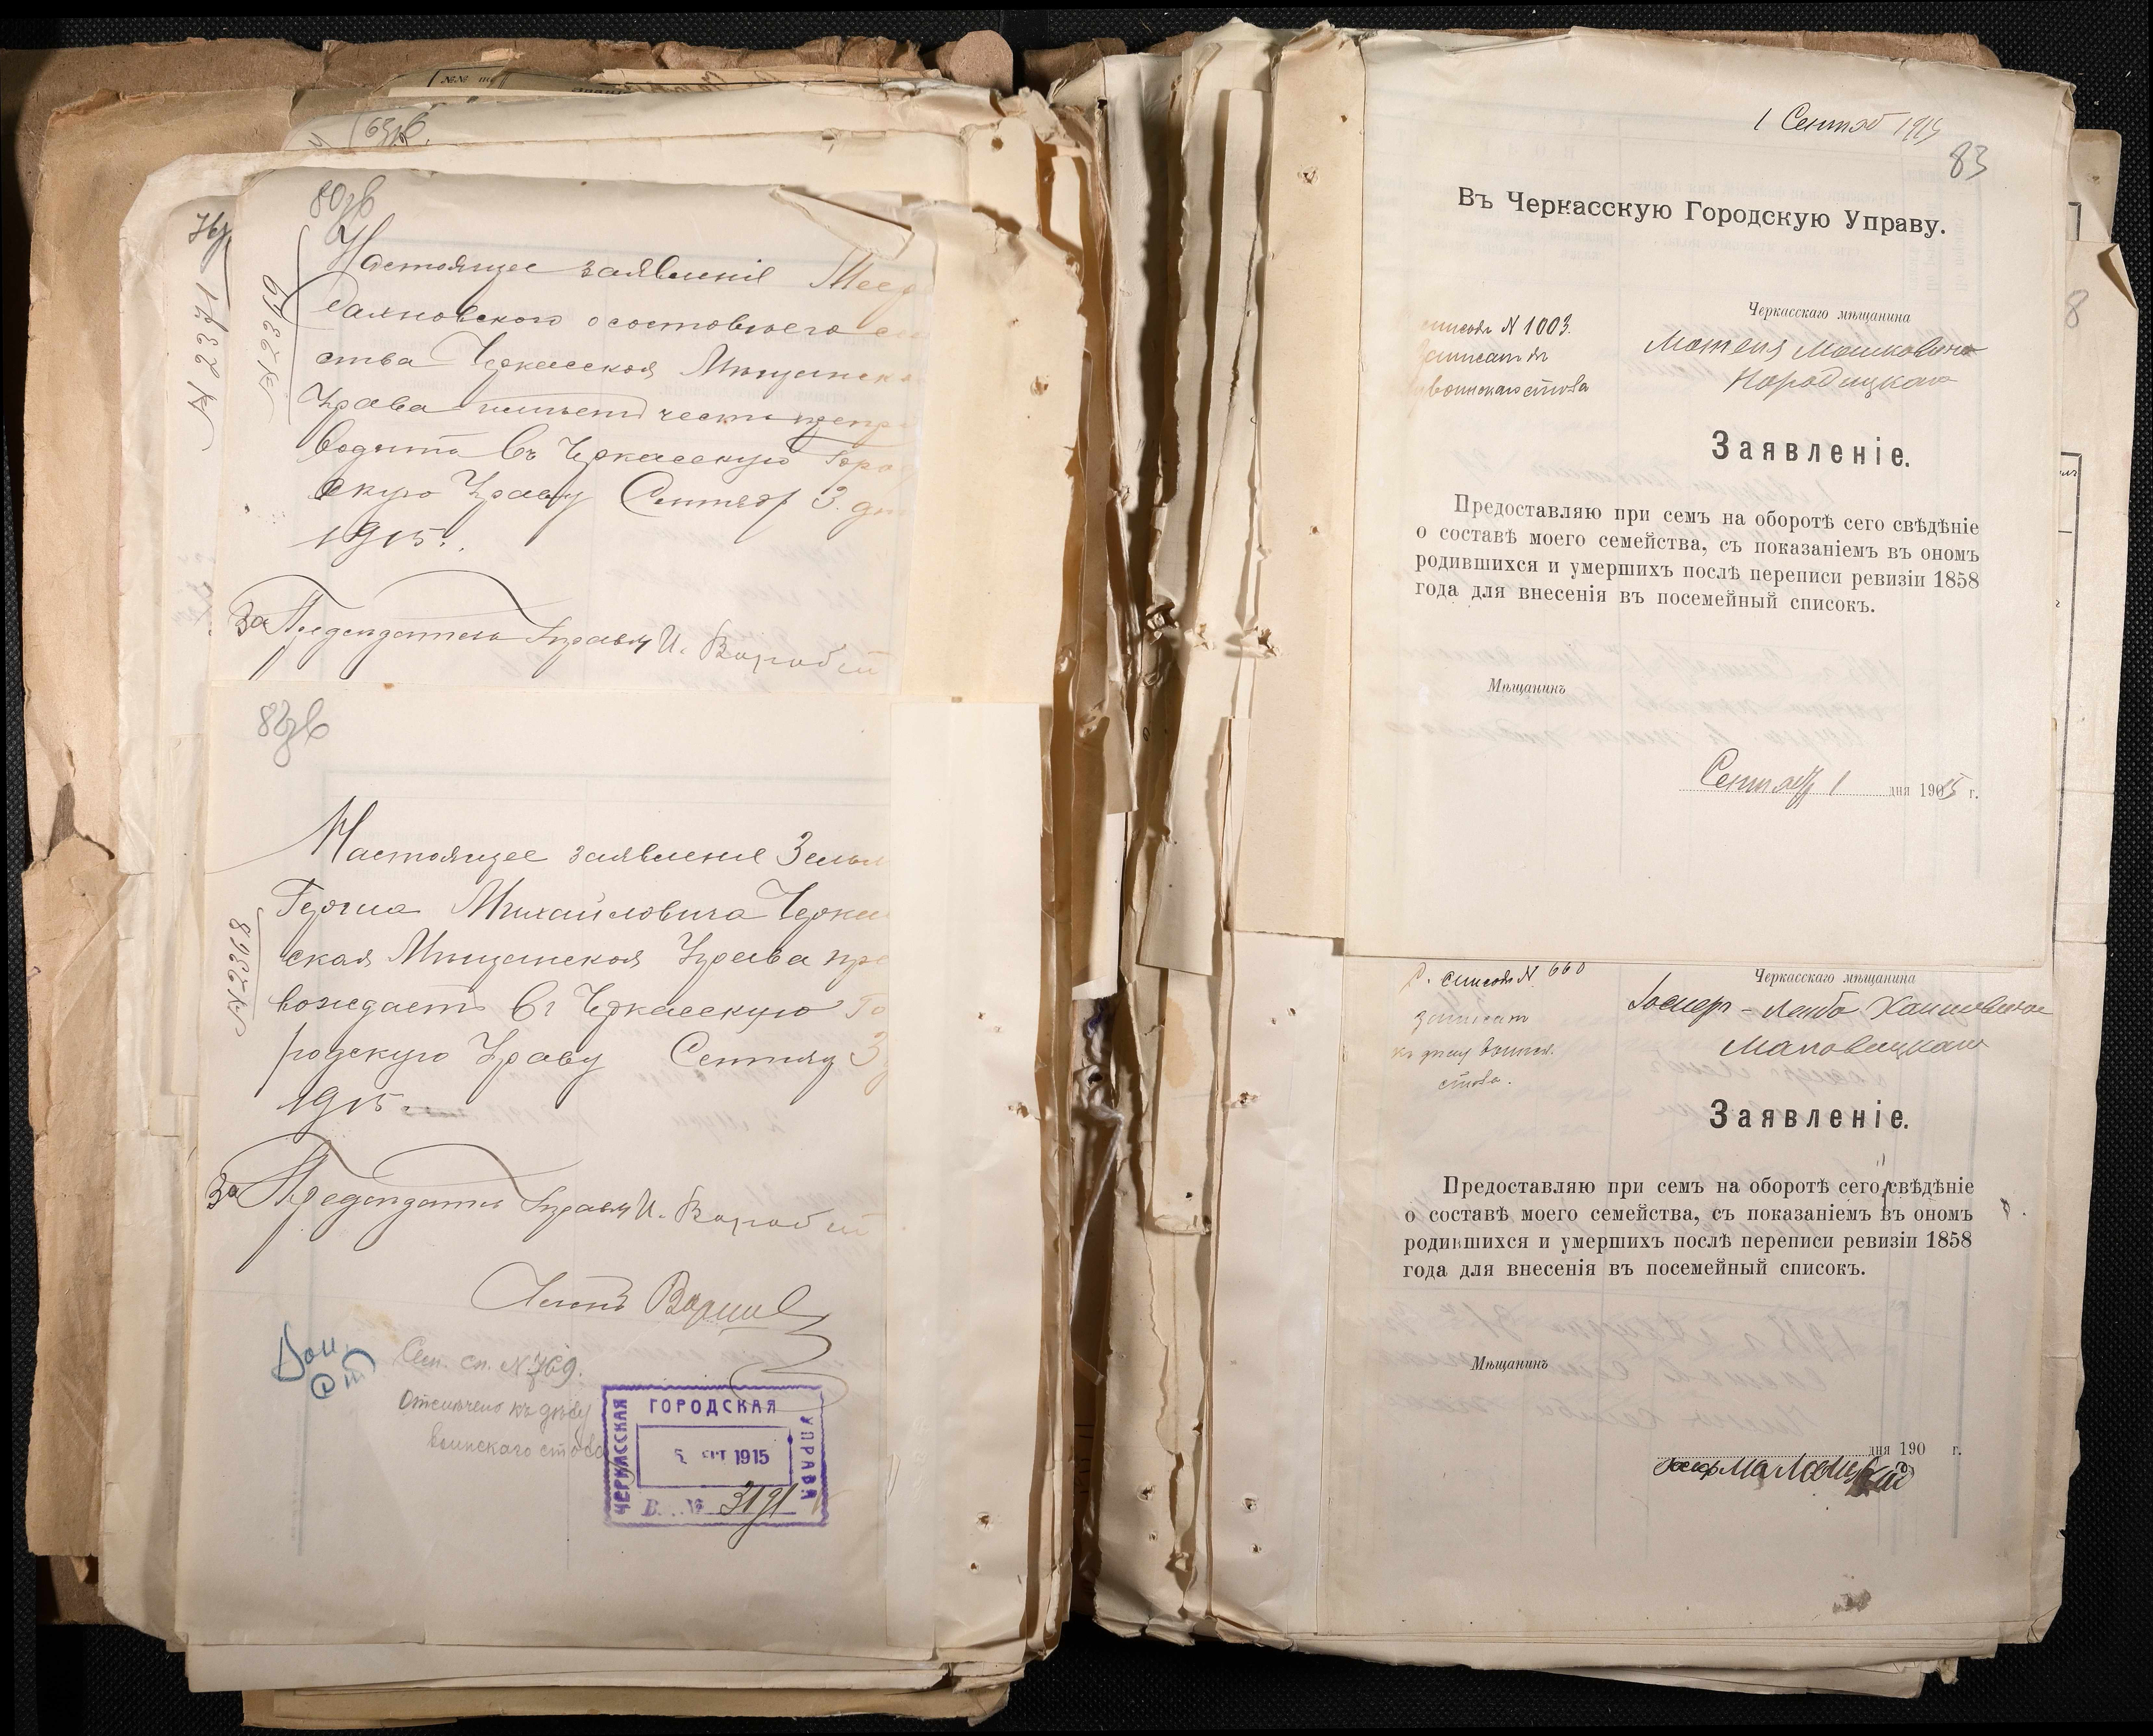 63зв.
76
№ 2371
80зв
№ 2369
Настоящее заявленіе
о составѣ его се
ства Черкасская Мѣщанска
Управа имѣетъ честь препро
водить въ Черкасскую Горо
скую Управу Сентяб 3 дн
1915 г.
За Предсѣдатель Управы И. Воробей
82зв
№ 2368
Настоящее заявленіе Зельм
Герша Михайловича Черкас
ская Мѣщанская Управа пре
вождаетъ въ Черкасскую Го
родскую Управу Сентяб 3
1915 г.
За Предсѣдатель Управы И. Воробей
Членъ
Воин. ст
Сем. сп. № 769.
Отмѣчено къ дѣлу
воинскаго стола
ЧЕРКАССКАЯ ГОРОДСКАЯ УПРАВА
5 СЕНТ 1915
В. № 3191
1 Сентяб 1915
83
Въ Черкасскую Городскую Управу.
списокъ N 1003.
Записанъ
воинскаго стола
Черкасскаго мѣщанина
Мотеля Мошковича
Народицкаго
Заявленіе.
Предоставляю при семъ на оборотѣ сего свѣдѣніе
о составѣ моего семейства, съ показаніемъ въ ономъ
родившихся и умершихъ послѣ переписи ревизіи 1858
года для внесенія въ посемейный списокъ.
Мѣщанинъ
Сентяб 1 дня 1915 г.
8
П. списокъ N 660
Записанъ
къ дѣлу воинск.
стола.
Черкасскаго мѣщанина
Іосифъ-Лейба Хаимовича
Маловицкаго
Заявленіе.
Предоставляю при семъ на оборотѣ сего свѣдѣніе
о составѣ моего семейства, съ показаніемъ въ ономъ
родившихся и умершихъ послѣ переписи ревизіи 1858
года для внесенія въ посемейный списокъ.
Мѣщанинъ
дня 190 г.
Іосифъ Маловицкій